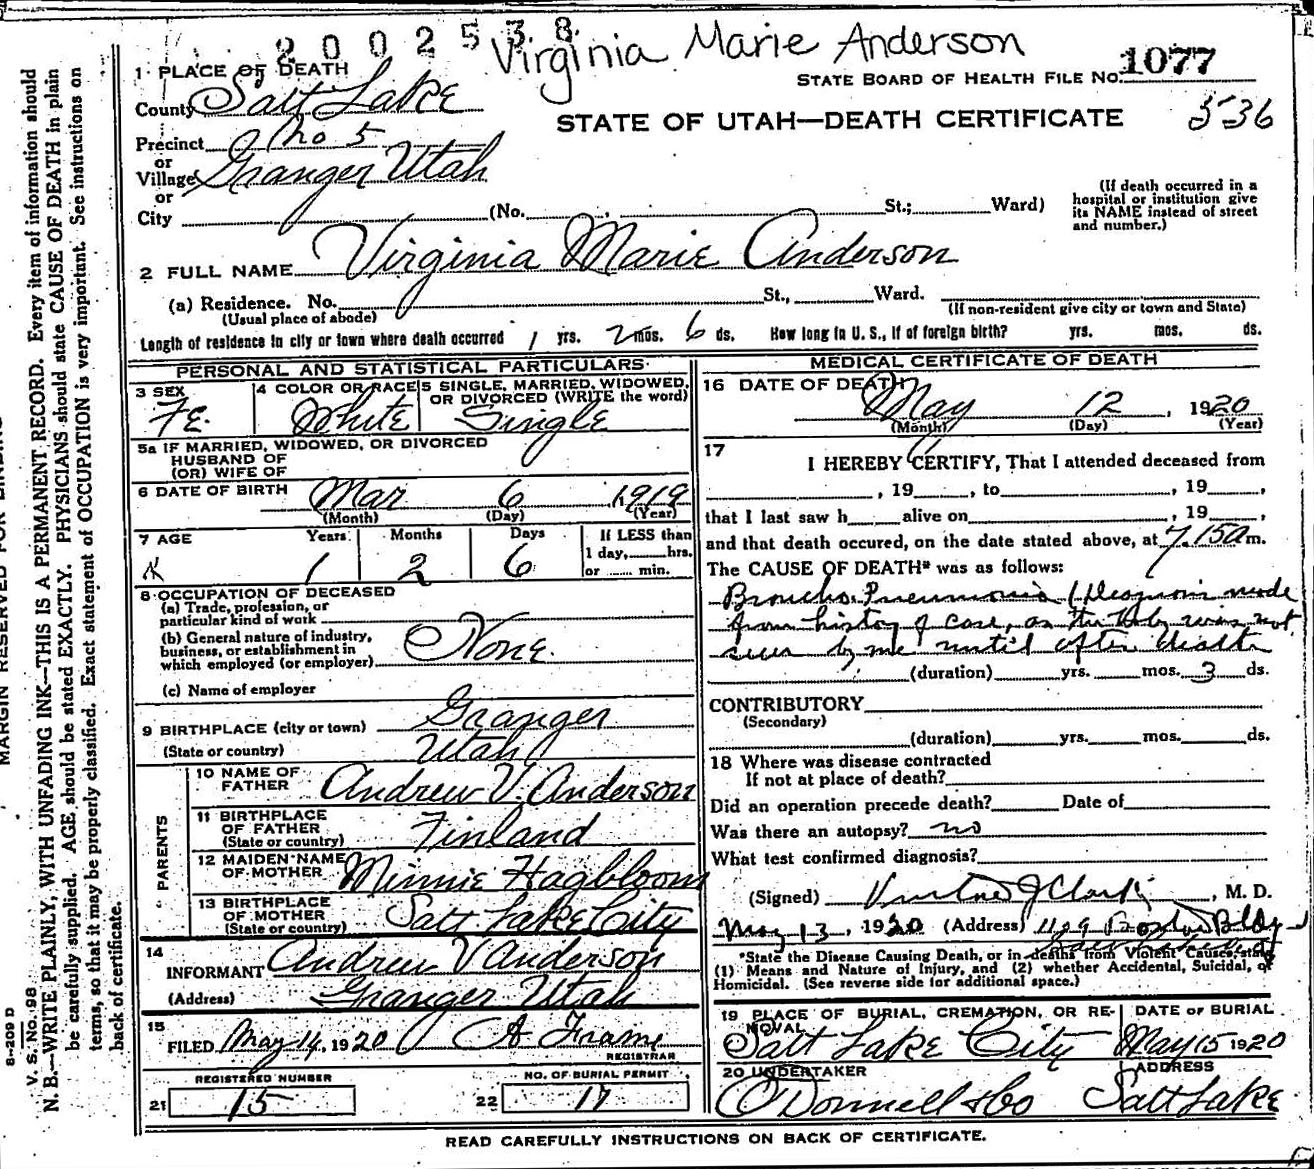 2002538
Virginia Marie Anderson
STATE BOARD OF HEALTH FILE NO. 1077
STATE OF UTAH—DEATH CERTIFICATE 536
1 PLACE OF DEATH
County Salt Lake
Precinct No 5
or
Village Granger Utah
or
City (No. St.; Ward)
(If death occurred in a
hospital or institution give
its NAME instead of street
and number.)
2 FULL NAME Virginia Marie Anderson
(a) Residence. No. St., Ward.
(Usual place of abode) (If non-resident give city or town and State)
Length of residence in city or town where death occurred 1 yrs. 2 mos. 6 ds. How long in U. S., if of foreign birth? yrs. mos. ds.
PERSONAL AND STATISTICAL PARTICULARS
3 SEX
FE.
4 COLOR OR RACE
White
5 SINGLE, MARRIED, WIDOWED,
OR DIVORCED (WRITE the word)
Single
5a IF MARRIED, WIDOWED, OR DIVORCED
HUSBAND OF
(OR) WIFE OF
6 DATE OF BIRTH Mar 6 1919
(Month) (Day) (Year)
7 AGE Years Months Days If LESS than
1 day, hrs.
or min.
1 2 6
8 OCCUPATION OF DECEASED
(a) Trade, profession, or
particular kind of work
(b) General nature of industry,
business, or establishment in
which employed (or employer)
None.
(c) Name of employer
9 BIRTHPLACE (city or town) Granger
(State or country) Utah
PARENTS
10 NAME OF
FATHER Andrew V. Anderson
11 BIRTHPLACE
OF FATHER
(State or country) Finland
12 MAIDEN NAME
OF MOTHER Minnie Hagbloom
13 BIRTHPLACE
OF MOTHER
(State or country) Salt Lake City
14
INFORMANT Andrew V Anderson
(Address) Granger Utah
15
FILED May 14, 1920 A Frame
REGISTRAR
REGISTERED NUMBER
21 15
NO. OF BURIAL PERMIT
22 17
MEDICAL CERTIFICATE OF DEATH
16 DATE OF DEATH
May 12, 1920
(Month) (Day) (Year)
17
I HEREBY CERTIFY, That I attended deceased from
, 19 , to , 19 ,
that I last saw h alive on , 19 ,
and that death occured, on the date stated above, at 7.15 a m.
The CAUSE OF DEATH* was as follows:
Broncho Pneumonia (Diagnosis made
from history of case, as the baby was not
seen by me until after death
(duration) yrs. mos. 3 ds.
CONTRIBUTORY
(Secondary)
(duration) yrs. mos. ds.
18 Where was disease contracted
If not at place of death?
Did an operation precede death? Date of
Was there an autopsy? no
What test confirmed diagnosis?
(Signed) J Clark, M. D.
May 13, 1920 (Address) 1129 Boston Bldg
Salt Lake City
*State the Disease Causing Death, or in deaths from Violent Causes, state
(1) Means and Nature of Injury, and (2) whether Accidental, Suicidal, or
Homicidal. (See reverse side for additional space.)
19 PLACE OF BURIAL, CREMATION, OR RE-
MOVAL
Salt Lake City
DATE OF BURIAL
May 15 1920
20 UNDERTAKER
O'Donnell & Co
ADDRESS
Salt Lake
READ CAREFULLY INSTRUCTIONS ON BACK OF CERTIFICATE.
MARGIN RESERVED FOR BINDING
N. B.—WRITE PLAINLY, WITH UNFADING INK—THIS IS A PERMANENT RECORD. Every item of information should
be carefully supplied. AGE should be stated EXACTLY. PHYSICIANS should state CAUSE OF DEATH in plain
terms, so that it may be properly classified. Exact statement of OCCUPATION is very important. See instructions on
back of certificate.
V. S. No. 98
8-209 D